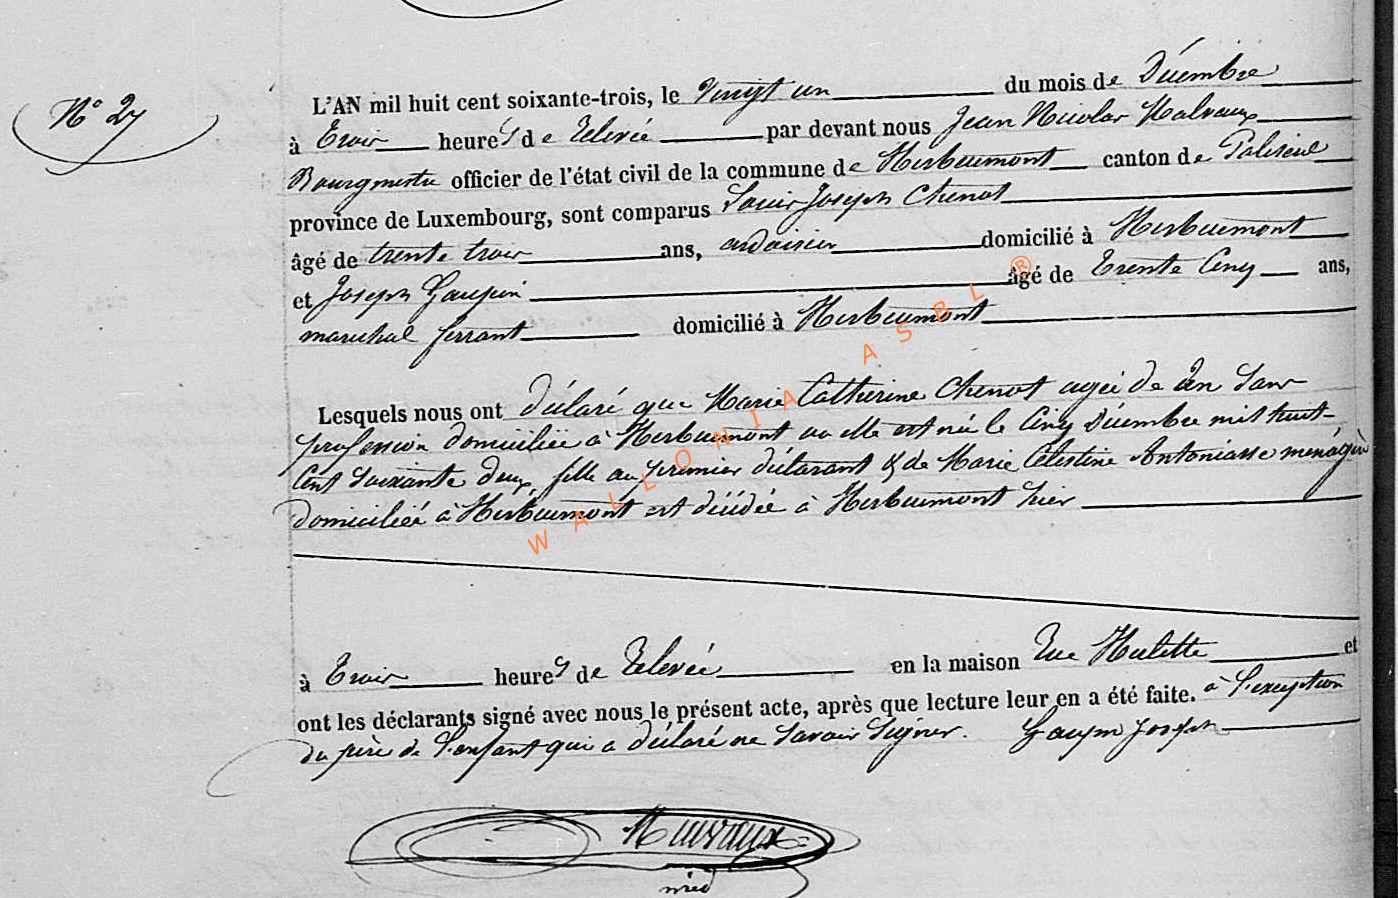 N° 27
L'AN mil huit cent soixante-trois, le vingt un du mois de Décembre
à trois heures de relevée par devant nous Jean Nicolas Malvaux
Bourgmestre officier de l'état civil de la commune de Herbeumont canton de Paliseul
province de Luxembourg, sont comparus Louis Joseph Chenot
âgé de trente trois ans, ardoisier domicilié à Herbeumont
et Joseph Gaupin âgé de trente cinq ans,
marechal ferrant domicilié à Herbeumont
Lesquels nous ont déclaré que Marie Catherine Chenot agée de un sans
profession domiciliée à Herbeumont ou elle est née le cinq Décembre mil huit-
cent soixante deux, fille au premier déclarant & de Marie Célestine Antoniasse menagère
domiciliée à Herbeumont est décédée à Herbeumont hier
à trois heures de relevée en la maison rue Hulette et
ont les déclarants signé avec nous le présent acte, après que lecture leur en a été faite. à l'exception
du père de l'enfant qui a déclaré ne savoir signer. Gaupin Joseph
Malvaux
WALLONIA ASBL ®